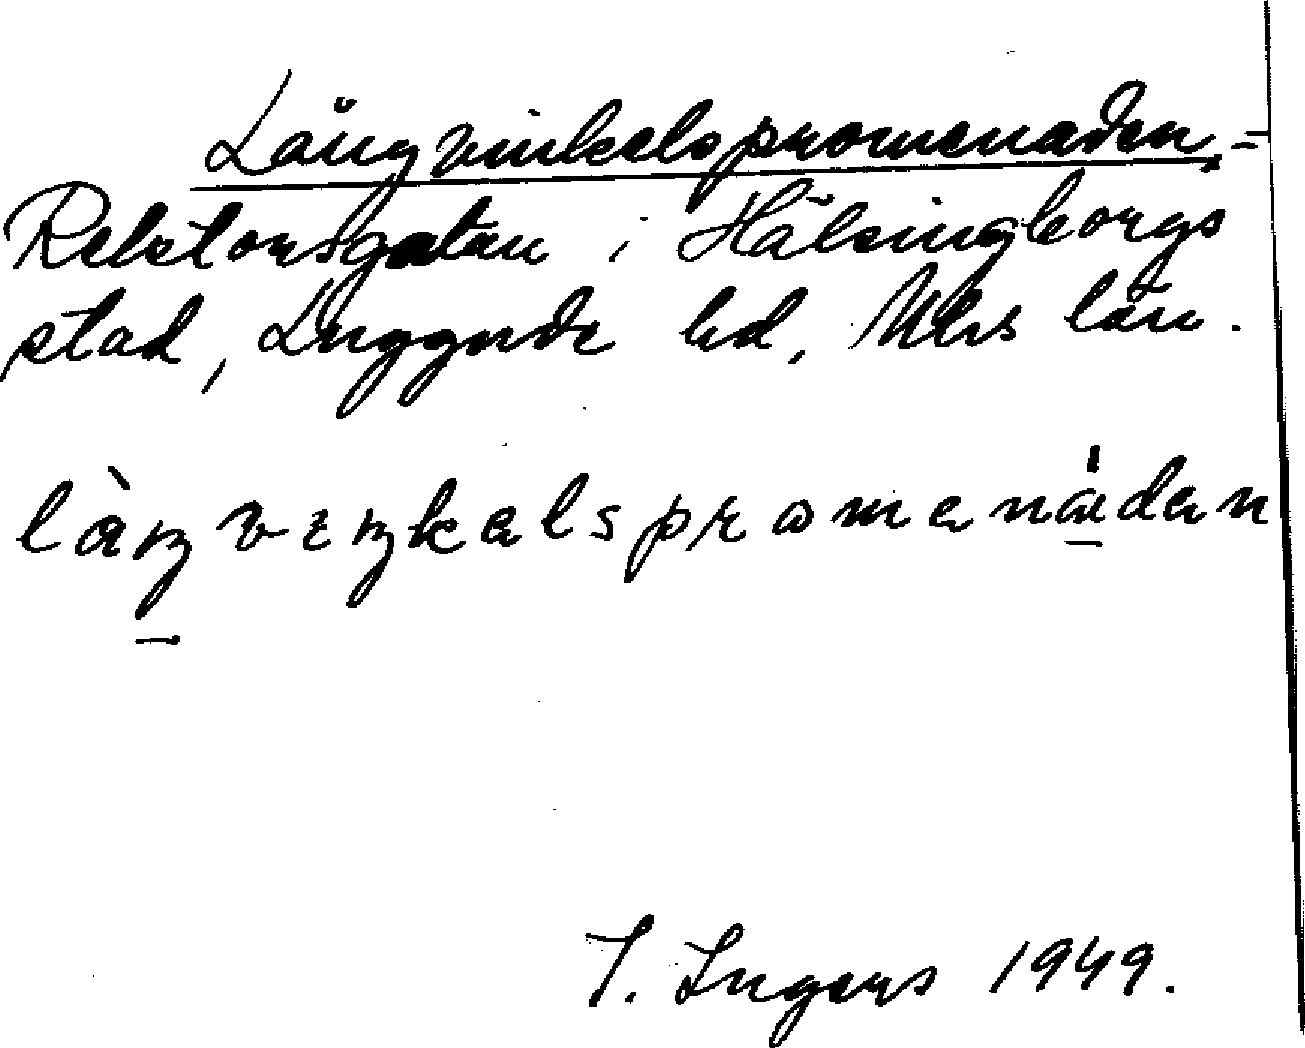 Långvinkelspromenaden, =
Rektorsgatan i Hälsingborgs
stad, Luggude hd, Mlhs län.
làŋvıŋkəlspromənádən
I. Ingers 1949.